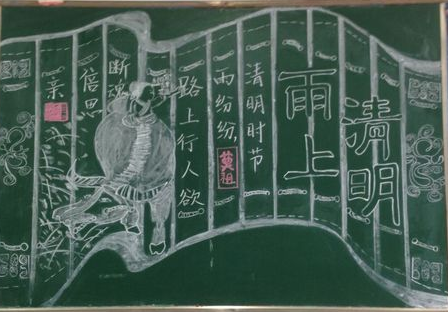 清明
雨上
清明时节
雨纷纷,
祖
路上行人欲
断魂
倍思
亲